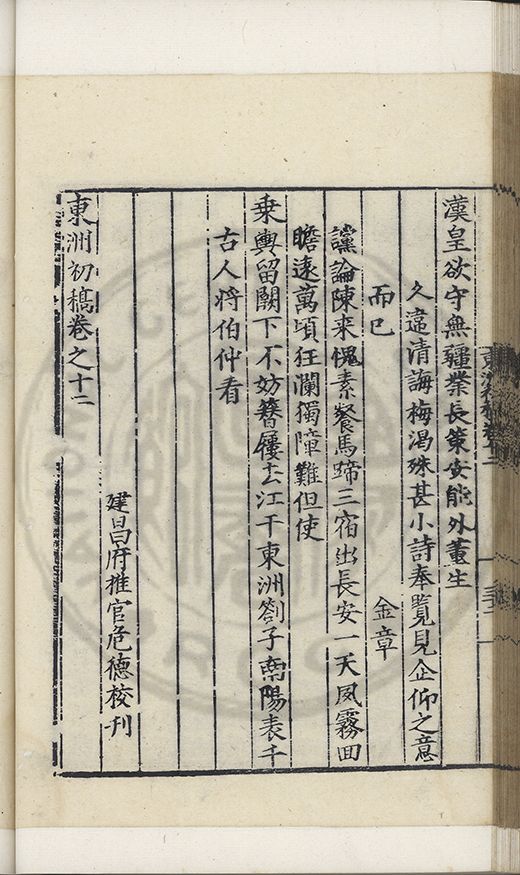 漢皇欲守無疆業長策安能外董生
久違清誨梅渴殊甚小詩奉覽見企仰之意
而已 金章
讜論陳來愧素餐馬蹄三宿出長安一天風霧回
瞻遠萬頃狂瀾獨障難但使
乘輿留闕下不妨簪屨去江干東洲劄子南陽表千
古人將伯仲看
建昌府推官危德校刊
東洲初稿卷之十二